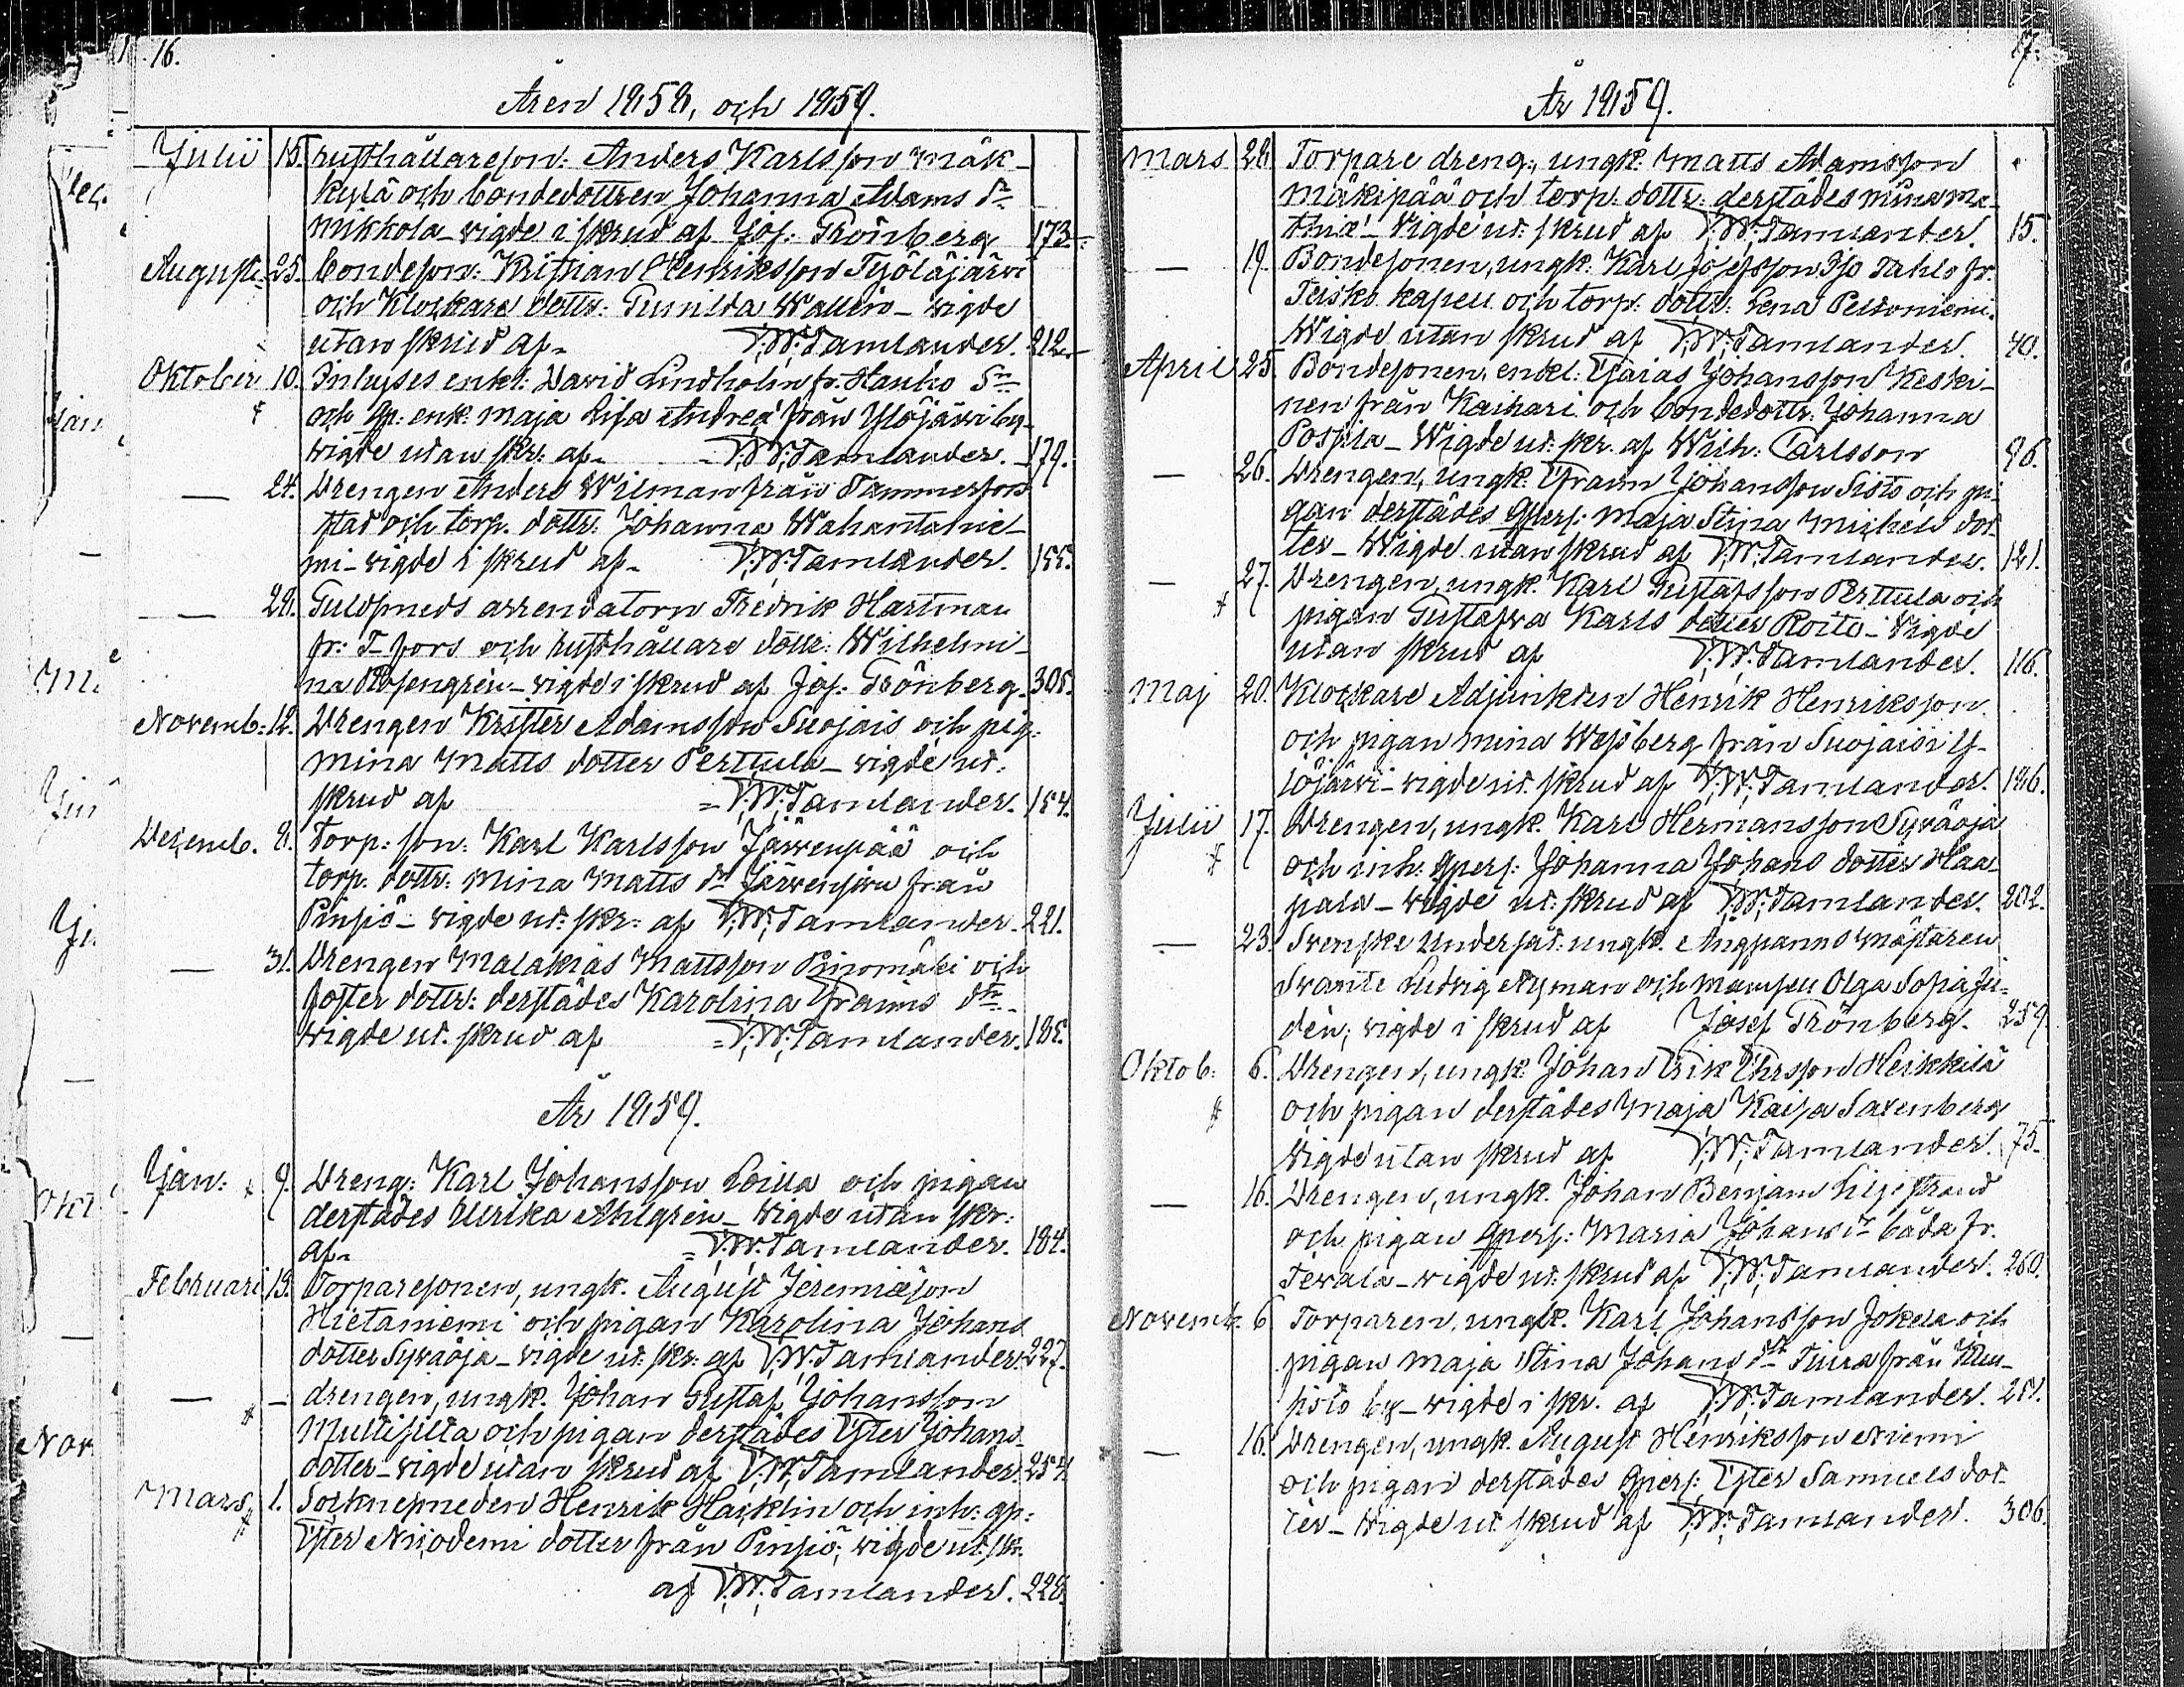 16.
Åren 1858, och 1859.
Julii 18. rusthållareson: Anders Karlsson Mäk-
kylä och bondedottren Johanna Adams dr
Mikkola – vigde i skrud af Jos: Grönberg 173.
Augusti 25. bondeson: Kristian Henriksson Työläjärvi
och Klockare dottr: Gunilda Wallin – vigde
utan skrud af – V. W. Tamlander. 212.
Oktober 10. Inhyses enkl: David Lindholm fr. Hauho Sn
och Qp: enk: Maja Lisa Andreæ från Ylöjärvi by –
vigde utan skr: af – V. W. Tamlander. 179.
— 24. Drengen Anders Wilman från Tammerfors
stad och torp. dottr: Johanna Wahantanie-
mi – vigde i skrud af – V. W. Tamlander. 155.
— 28. Guldsmeds arrendatorn Fredrik Hartman
fr: T-fors och rusthållare dottr: Wilhelmi-
na Rosengrén – vigde i skrud af Jos. Grönberg. 305.
Novemb: 12. Drengen Krister Adamsson Suojais och pig:
Mina Matts dotter Perttula – vigde ut:
skrud af V. W. Tamlander. 154.
Decemb. 8. Torp: son: Karl Karlsson Järvenpää och
torp. dottr: Mina Matts dr Järvensivu från
Pinsiö – vigde ut: skr: af V. W. Tamlander. 221.
— 31. Drengen Malakias Mattsson Pinomäki och
foster dottr: derstädes Karolina Frans dr –
vigde ut. skrud af V. W. Tamlander. 185.
År 1859.
Jan: 9. Dreng: Karl Johansson Loilla och pigan
derstädes Ulrika Ahlgrén – vigde utan skr:
af – V. W. Tamlander. 184.
Februari 13. Torparesonen, ungk. August Jeremiæson
Hietaniemi och pigan Karolina Johans
dotter Syväoja – vigde ut: skr: af V. W. Tamlander. 227.
— – drengen, ungk. Johan Gustaf Johansson
Multisilta och pigan derstädes Ester Johans-
dotter – vigde utan skrud af V. W. Tamlander. 254.
Mars 1. Socknesmeden Henrik Hacklin och inh: qp:
Ester Nicodemi dotter från Pinsiö, vigde ut. skr.
af V. W. Tamlander. 228.
17.
År 1859.
Mars 28. Torpare dreng:, ungk: Matts Adamsson
Mäkipää och torp: dottr: derstädes Mina Ma-
thiæ – Vigde ut: skrud af V. W. Tamlander. 15.
— 19. Bondesonen, ungk: Karl Josefsson Iso Tahlo fr.
Teisko kapell och torp: dottr: Lena Peltoniemi.
Wigde utan skrud af V. W. Tamlander. 40.
April 25. Bondesonen, enkl: Esaias Johansson Keski-
nen från Kaihari och bondedottr: Johanna
Pospila – Wigde ut. skr. af Wilh: Carlsson 96.
— 26. Drengen, ungk. Frann Johansson Sisto och pi-
gan derstädes Qpers: Maja Stina Michels dot-
ter – Wigde utan skrud af V. W. Tamlander. 121.
— 27. Drengen, ungk. Karl Gustafsson Perttula och
pigan Gustafva Karls dotter Roito – Vigde
utan skrud af V. W. Tamlander. 116.
Maj 20. Klockare Adjunkten Henrik Henriksson
och pigan Mina Wesberg från Suojais i Y-
löjärvi – vigde ut. skrud af V. W. Tamlander. 186.
Julii 17. Drengen, ungk. Karl Hermansson Syväoja
och inh: Qpers: Johanna Johans dotter Haa-
pala – Wigde ut: skrud af V. W. Tamlander. 202.
— 23. Svenske Undersåt: ungk. Ångpanns mästaren
Svante Ludvig Nyman och Mamsell Olga Sofia Ju-
dén; vigde i skrud af Josef Grönberg. 259.
Oktob: 6. Drengen, ungk: Johan Erik Ehrsson Heikkilä
och pigan derstädes Maja Kaisa Saxenberg
Vigde utan skrud af V. W. Tamlander. 75.
— 16. Drengen, ungk. Johan Benjam Liljestrand
och pigan Qpers: Maria Johans dr båda fr.
Tevala – vigde ut: skrud af V. W. Tamlander. 260.
Novemb. 6. Torparen, ungk. Karl Johansson Jokela och
pigan Maja Stina Johans dr Tiura från Kuu-
sisto by – vigde i skr. af V. W. Tamlander. 251.
— 16. Drengen, ungk. August Henriksson Niemi
och pigan derstädes Qpers: Ester Samuels dot-
ter – Vigde ut. skrud af V. W. Tamlander. 306.